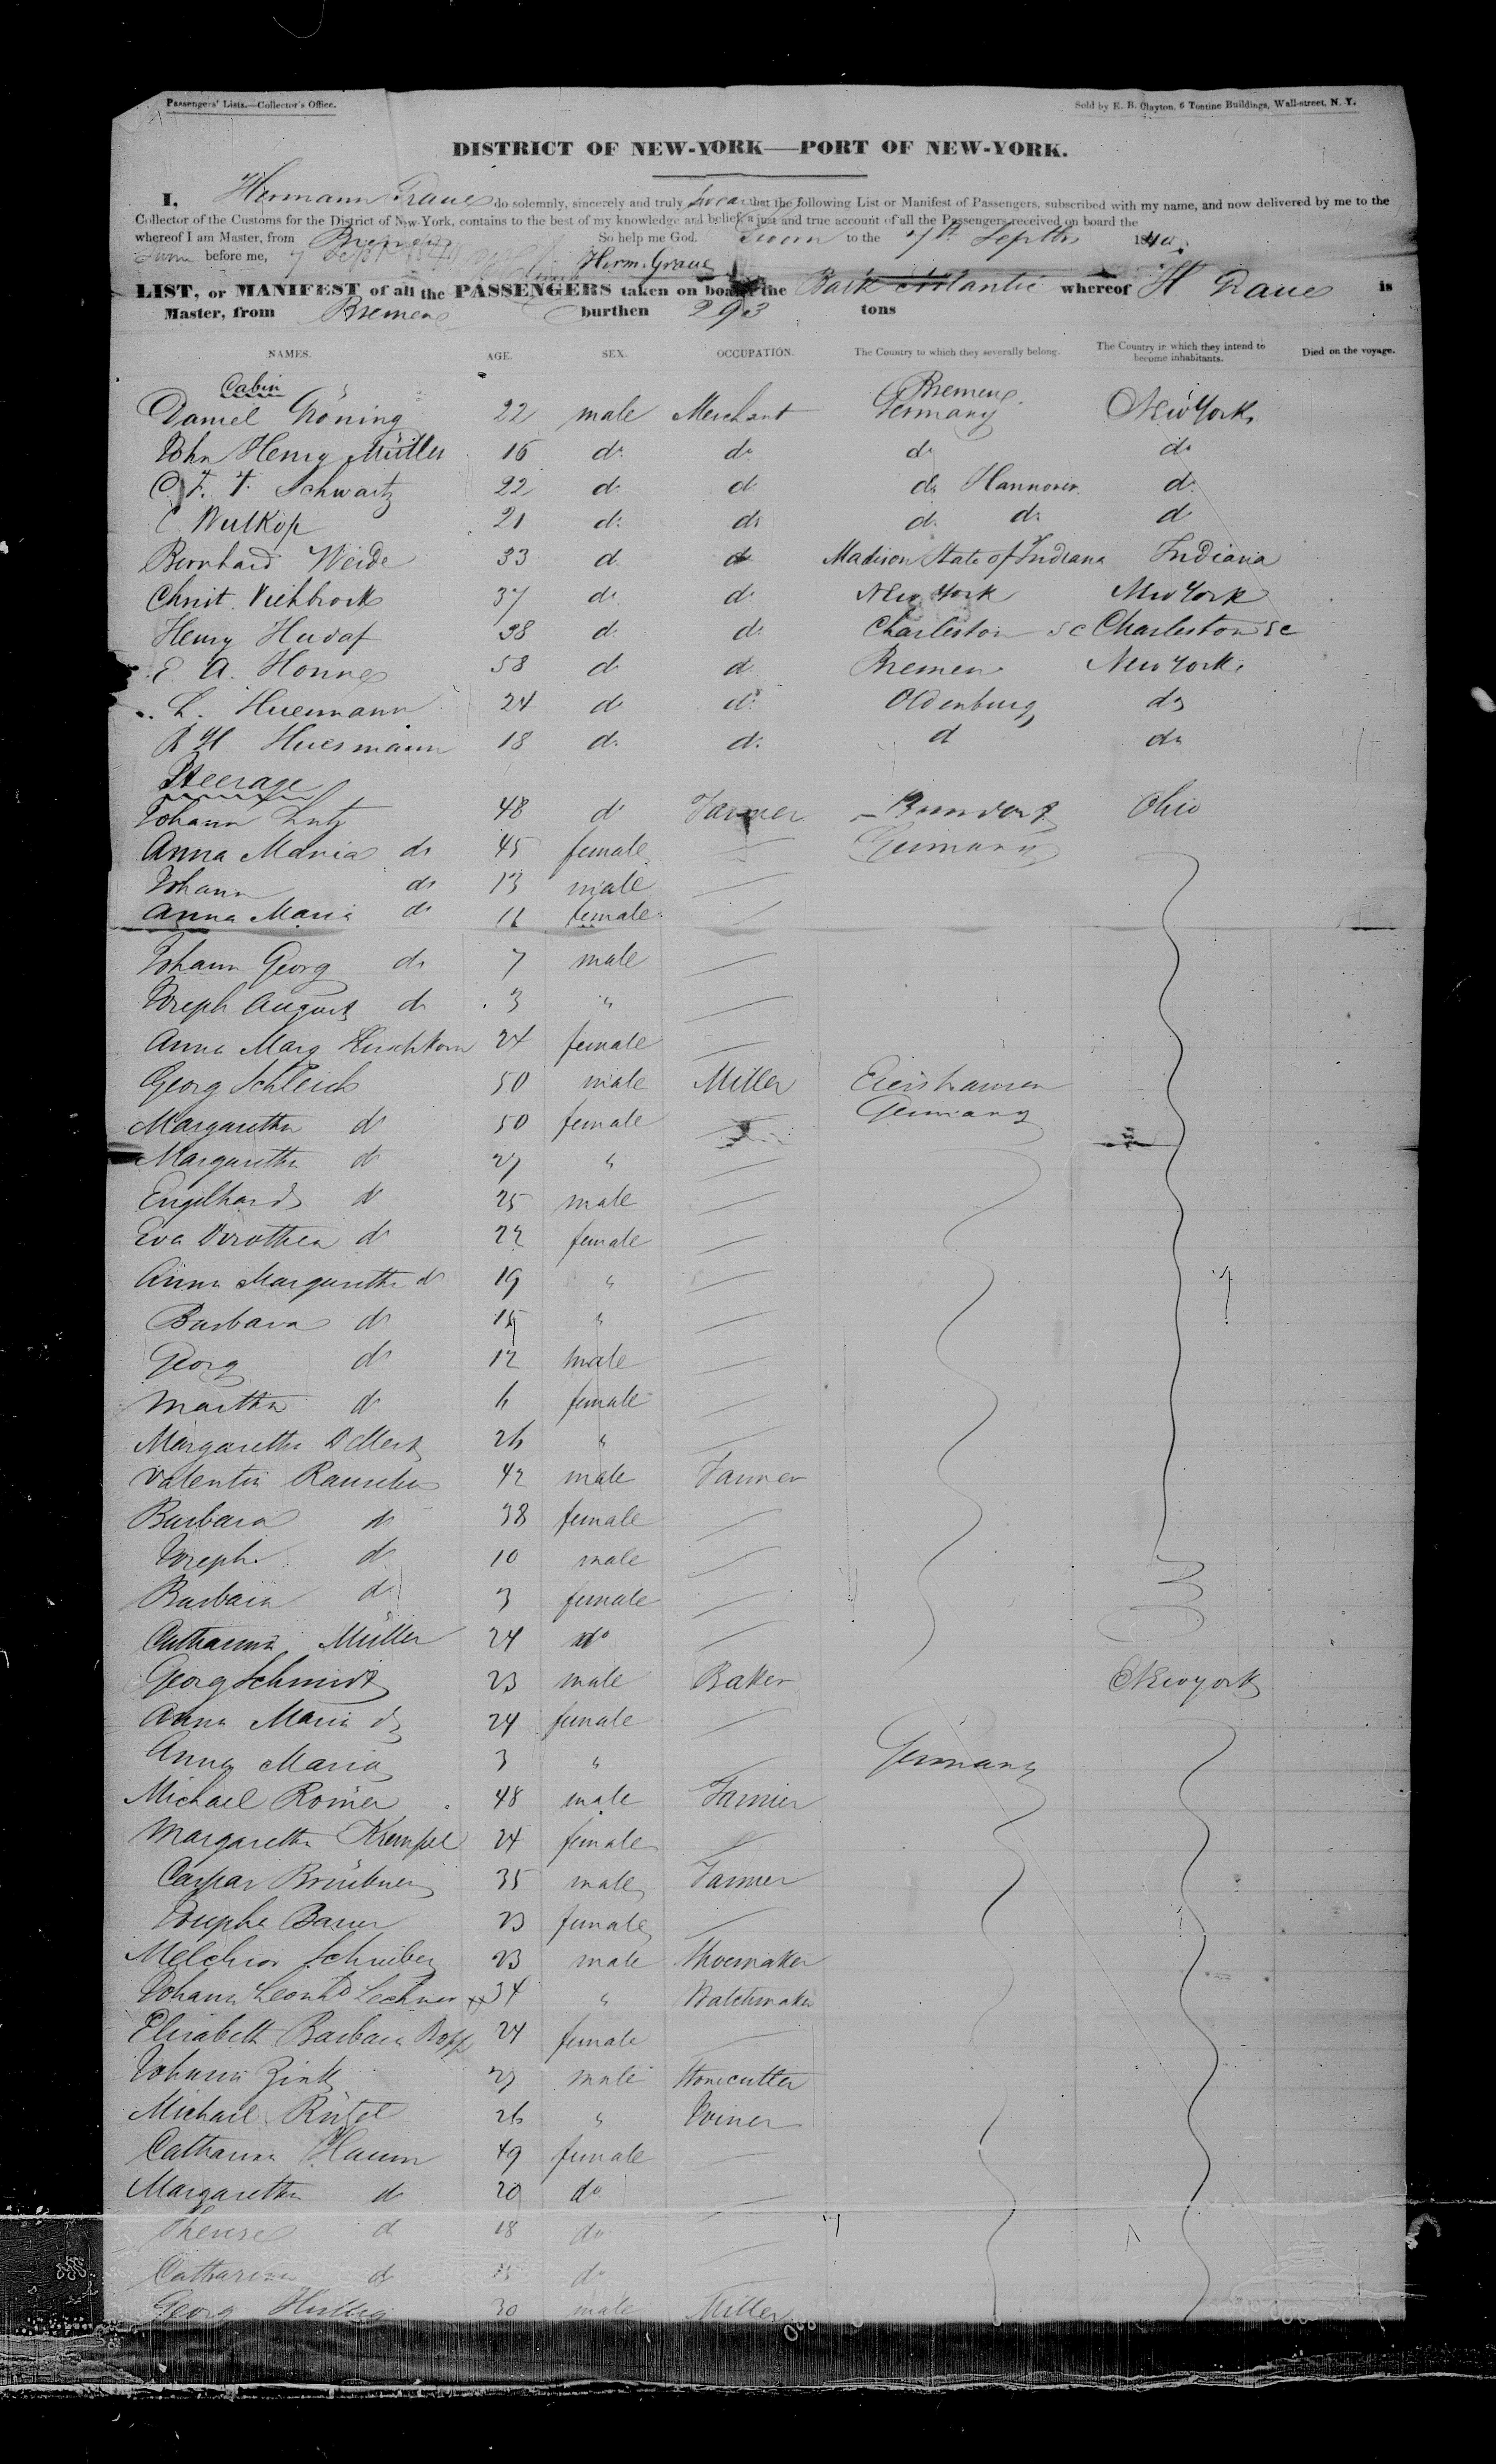 Passengers' Lists.—Collector's Office.
Sold by E. B. Clayton, 6 Tontine Buildings, Wall-street, N. Y.
DISTRICT OF NEW-YORK—PORT OF NEW-YORK.
I, Hermann Graue do solemnly, sincerely and truly swear that the following List or Manifest of Passengers, subscribed with my name, and now delivered by me to the
Collector of the Customs for the District of New-York, contains to the best of my knowledge and belief, a just and true account of all the Passengers received on board the
whereof I am Master, from Bremen So help me God. Sworn to the 7th Septbr 1840
before me, 7 Sept 1840 Herm. Graue
LIST, or MANIFEST of all the PASSENGERS taken on board the Bark Atlantic whereof H Graue is
Master, from Bremen burthen 293 tons
NAMES. AGE. SEX. OCCUPATION. The Country to which they severally belong. The Country in which they intend to become inhabitants. Died on the voyage.
Cabin Bremen
Daniel Gröning 22 male Merchant Germany New York
John Henry Müller 16 do do do do
C. F. F. Schwartz 22 d d do Hannover d
C Wulkop 21 do do do do d
Bernhard Weide 33 d d Madison State of Indiana Indiana
Christ. Viehbrock 37 do d New York New York
Henry 38 d d Charleston SC Charleston SC
E. A. Honne 58 d d Bremen New York
L. Huesmann 24 d d Oldenburg do
R H Huesmann 18 d d d do
Steerage
Johann Lutz 48 d Farmer Ohio
Anna Maria do 45 female — Germany
Johann do 13 male —
Anna Maria do 11 female —
Johann Georg do 7 male —
Joseph August do 3 " —
Anna Marg Hirschkorn 24 female —
Georg Schleich 50 male Miller Eiershausen
Margaretha d 50 female — Germany
Margaretha d 27 " —
Engelhard d 25 male —
Eva Dorothea d 22 female —
Anna Margaretha d 19 " —
Barbara d 15 " —
Georg d 12 male —
Martha d 6 female —
Margaretha 26 " —
Valentin Rauscher 42 male Farmer
Barbara d 38 female —
Joseph d 10 male —
Barbara d 3 female —
Catharina Müller 24 do —
Georg Schmidt 23 male Baker New york
Anna Maria do 24 female —
Anna Maria 3 " — Germany
Michael Römer 48 male Farmer
Margaretha Krempel 24 female —
Caspar Brückner 35 male Farmer
Josepha Bauer 23 female —
Melchior Schreiber 23 male Shoemaker
Johann Leonhd Lechner 34 " Watchmaker
Elisabeth Barbara Ropp 24 female —
Johann Zink 27 male Stonecutter
Michael Rützel 26 " Joiner
Catharina Haun 49 female —
Margaretha d 20 do —
Therese d 18 do —
Catharina d 15 do —
Georg Hellig 30 male Miller